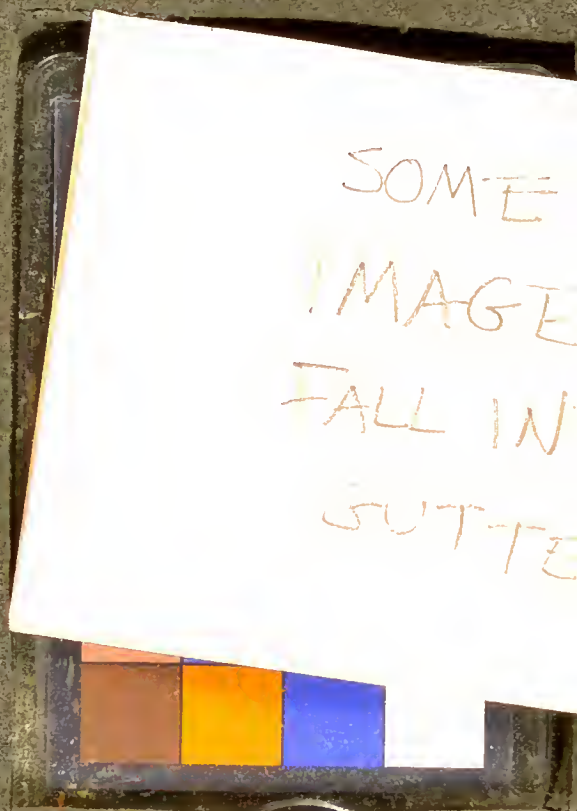 SOME
IMAGE
FALL IN
GUTTE